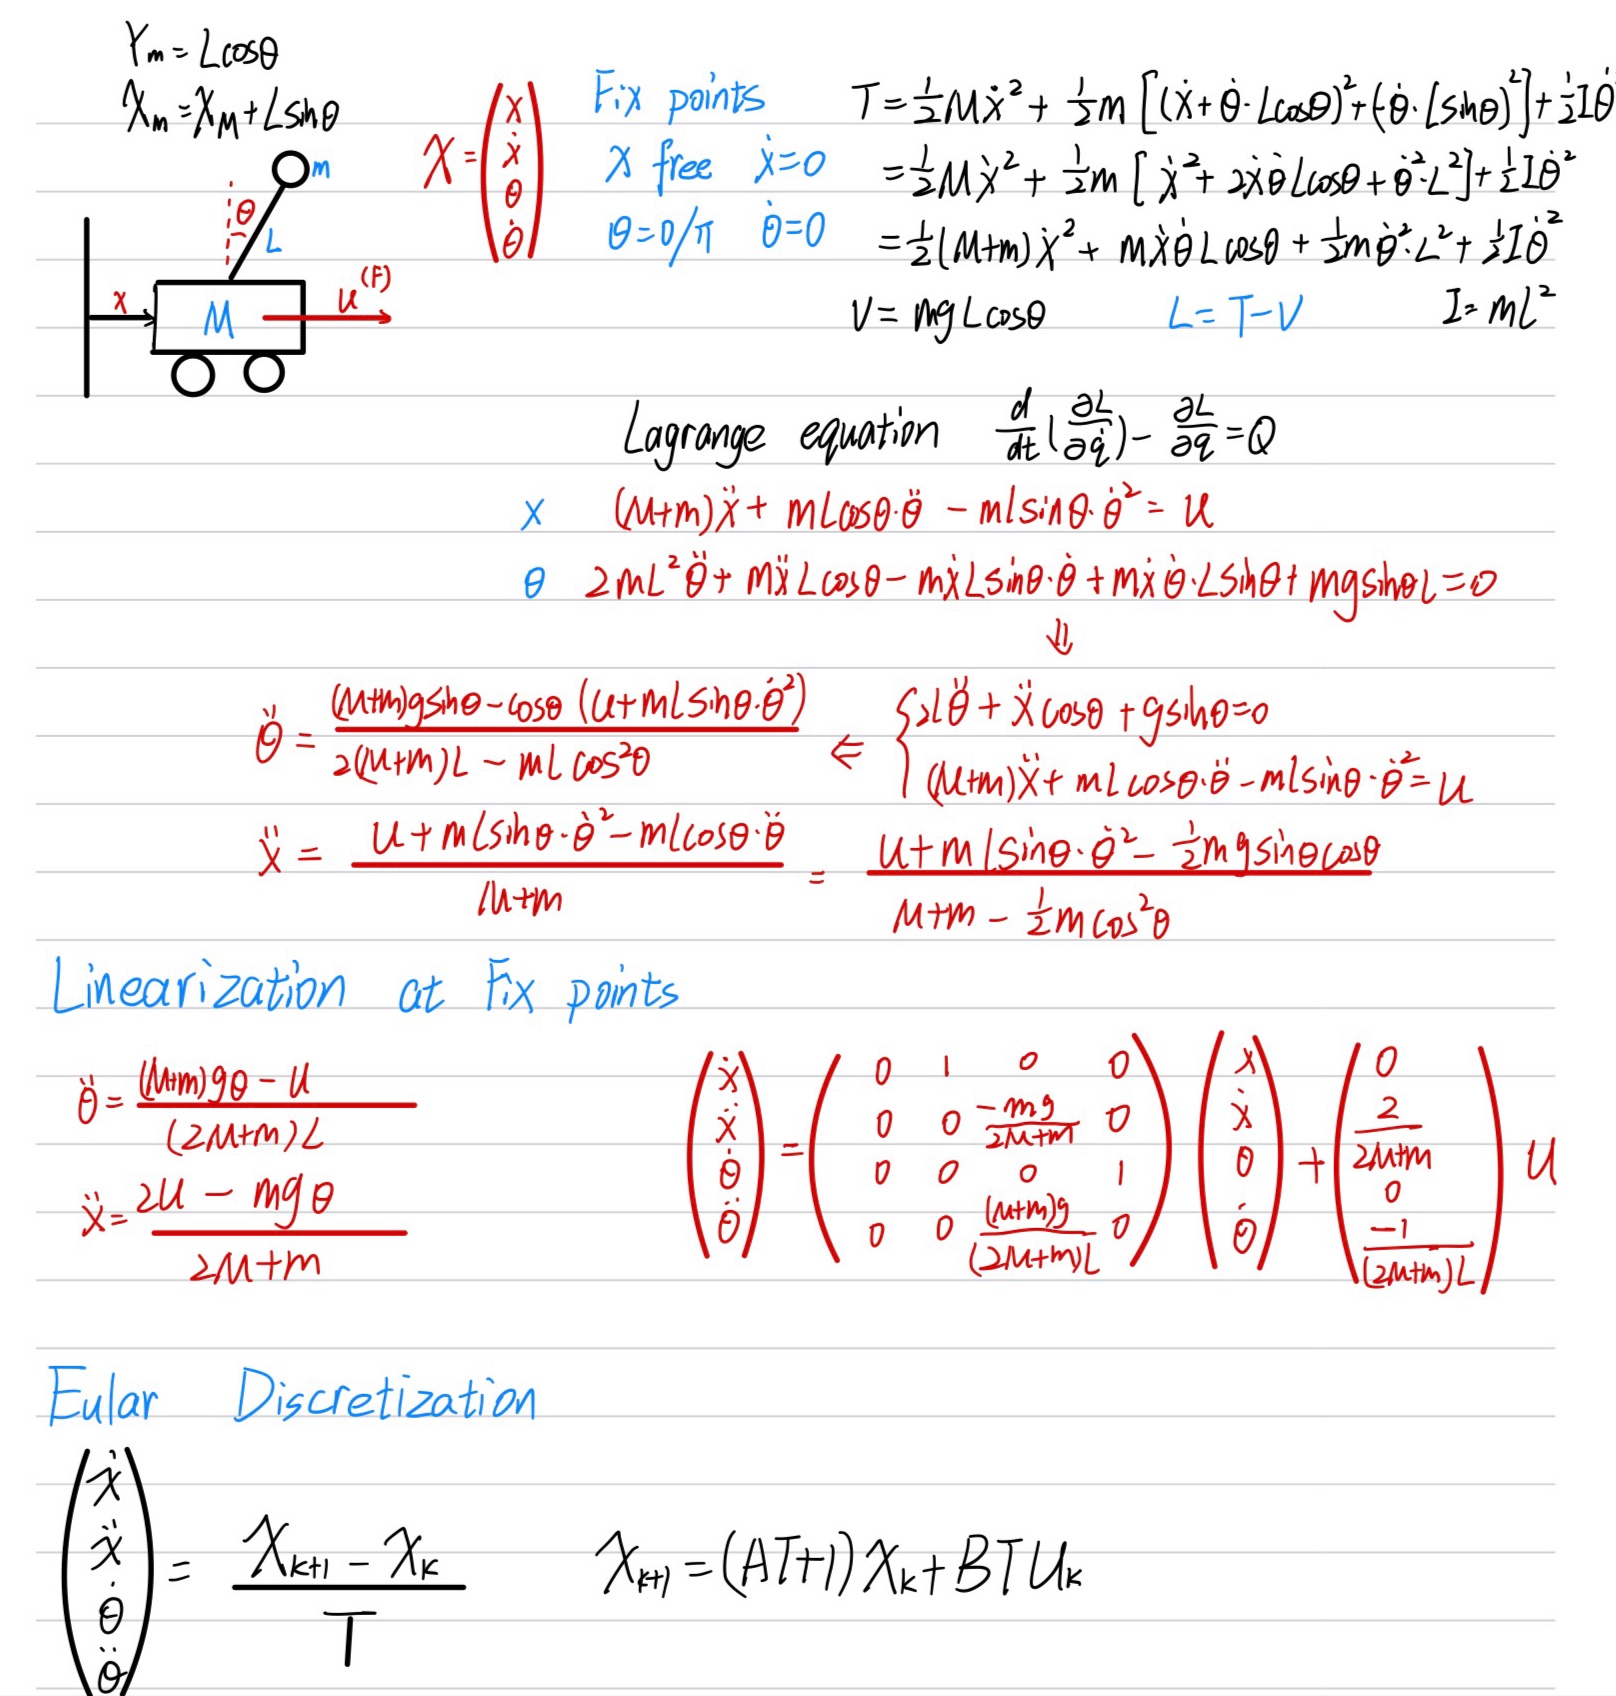 Yₘ = Lcosθ
Xₘ = X_M + Lsinθ
m
θ
L
x
M
u (F)
X = (x ẋ θ θ̇)
Fix points
x free ẋ=0
θ=0/π θ̇=0
T = ½Mẋ² + ½m[(ẋ+θ̇·Lcosθ)²+(-θ̇·Lsinθ)²]+½Iθ̇
= ½Mẋ² + ½m[ẋ²+2ẋθ̇Lcosθ+θ̇²·L²]+½Iθ̇²
= ½(M+m)ẋ² + mẋθ̇Lcosθ + ½mθ̇²·L² + ½Iθ̇²
V = mgLcosθ L=T-V I=ml²
Lagrange equation d/dt(∂L/∂q̇) - ∂L/∂q = Q
x (M+m)ẍ + mLcosθ·θ̈ - mlsinθ·θ̇² = u
θ 2mL²θ̈ + mẍLcosθ - mẋLsinθ·θ̇ + mẋθ̇·Lsinθ + mgsinθL = 0
⇓
θ̈ = ((M+m)gsinθ - cosθ(u+mLsinθ·θ̇²)) / (2(M+m)L - mLcos²θ) ⇐ { 2lθ̈ + ẍcosθ + gsinθ=0
(M+m)ẍ + mLcosθ·θ̈ - mlsinθ·θ̇² = u
ẍ = (u+mLsinθ·θ̇² - mlcosθ·θ̈) / (M+m) = (u+mLsinθ·θ̇² - ½mgsinθcosθ) / (M+m - ½mcos²θ)
Linearization at Fix points
θ̈ = ((M+m)gθ - u) / ((2M+m)L)
ẍ = (2u - mgθ) / (2M+m)
(ẋ ẍ θ̇ θ̈) = (0 1 0 0
0 0 -mg/(2M+m) 0
0 0 0 1
0 0 (M+m)g/((2M+m)L) 0) (x ẋ θ θ̇) + (0 2/(2M+m) 0 -1/((2M+m)L)) u
Eular Discretization
(ẋ ẍ θ̇ θ̈) = (X_{k+1} - X_k) / T X_{k+1} = (AT+1)X_k + BTU_k